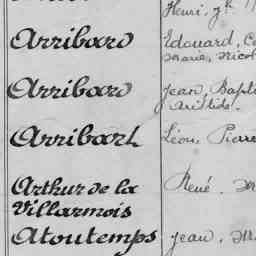 Henri, 
Arribard Edouard, 
Marie, Nicol
Arribard Jean, Bapti
Aristide.
Arribart Léon, Pierre
Arthur de la René.
Villarmois
Atoutemps Jean,